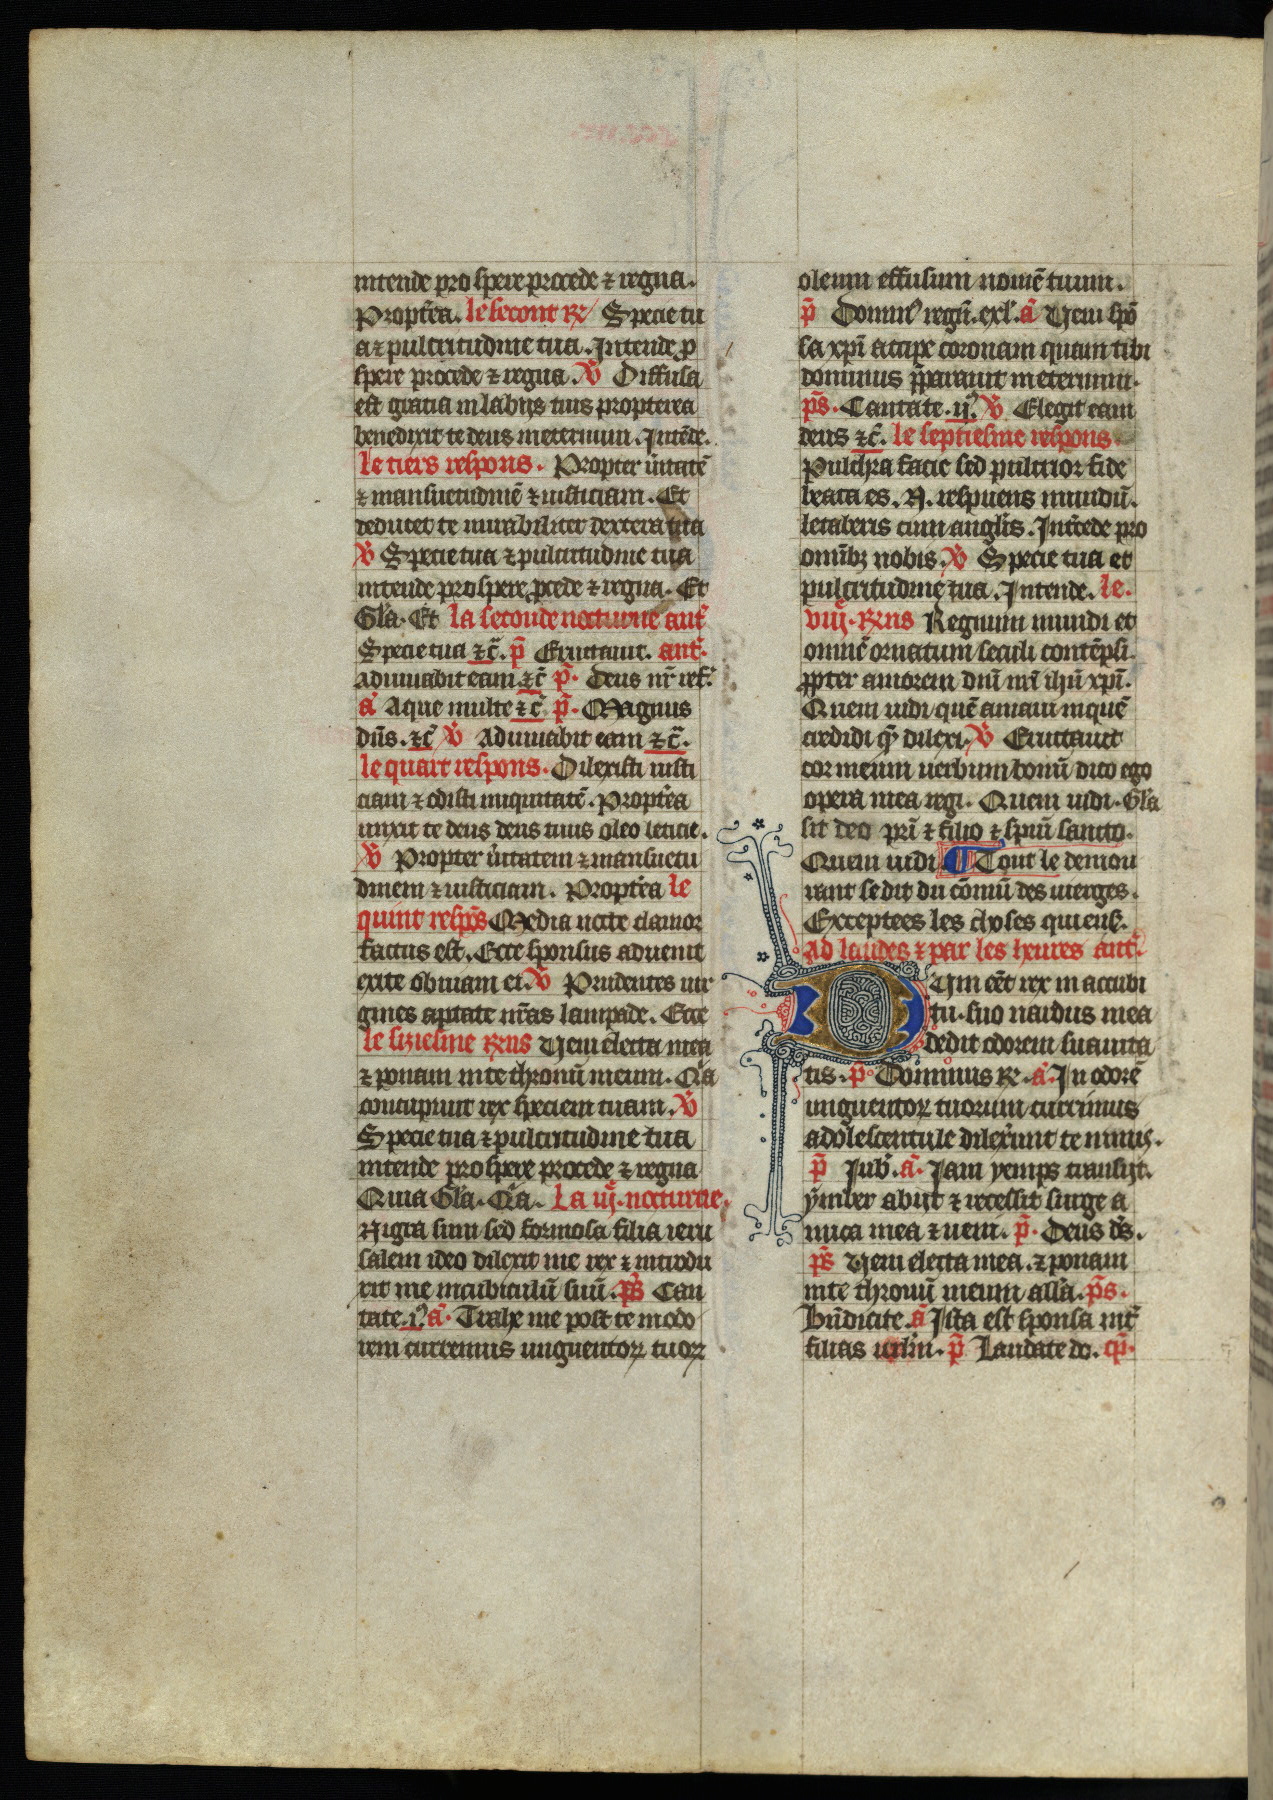 intende prospere procede ⁊ regna.
Propt̄ea. le secont R̷ Specie tu
a ⁊ pulcritudine tua. Intende ꝓ
spere procede ⁊ regna. V̷ Diffusa
est gratia in labijs tuis propterea
benedixit te deus in eternum. Intēde.
le tiers respons. Propter ūitatē
⁊ mansuetudinē ⁊ iusticiam. Et
deducet te mirabiliter dextera tua
V̷ Specie tua ⁊ pulcritudine tua
intende prospere ꝓcede ⁊ regna. Et
Gl̄a. Et la seconde nocturne ant̄
Specie tua ⁊c̄. p̄ Eructauit. ant̄.
Adiuuabit eam ⁊c̄ p̄. Deus nr̄ ref.
a᷑ Aque multe ⁊c̄ p̄. Magnus
dūs. ⁊c̄ V̷ Adiuuabit eam ⁊c̄.
le quart respons. Dilexisti iusti
ciam ⁊ odisti iniquitatē. Propt̄ea
unxit te deus deus tuus oleo leticie.
V̷ Propter ūitatem ⁊ mansuetu
dinem ⁊ iusticiam. Propt̄ea le
quint resp̄s Media nocte clamor
factus est. Ecce sponsus aduenit
exite obuiam ei. V̷ Prudentes uir
gines aptate ur̄as lampade. Ecce
le siziesme R̷ns Ueni electa mea
⁊ ponam in te thronū meum. Q̄a
concupiuit rex speciem tuam. V̷
Specie tua ⁊ pulcritudine tua
intende prospere procede ⁊ regna
Quia Gl̄a. Q̄a. La iij. nocturne.
Nigra sum sed formosa filia ieru
salem ideo dilexit me rex ⁊ introdu
xit me in cubiculū suū. p̄s Can
tate. i. a᷑. Trahe me post te in odo
rem curremus unguentoꝝ tuoꝝ
oleum effusum nomē tuum.
p̄ Domin᷒ regn̄. exl. a᷑ Ueni spō
sa xp̄i accipe coronam quam tibi
dominus p̄parauit in eternum.
p̄s. Cantate. ij. V̷ Elegit eam
deus ⁊c̄. le septiesme respons.
Pulchra facie sed pulcrior fide
beata es. N. respuens mundū.
letaberis cum angl̄is. Int̄cede pro
omībꝫ nobis. V̷ Specie tua et
pulcritudine tua. Intende. le.
viij. R̷ns Regnum mundi et
omnē ornatum seculi contēpsi.
ꝓpter amorem dn̄i mī ih̄u xp̄i.
Quem uidi quē amaui in quē
credidi q̄ dilexi. V̷ Eructauit
cor meum uerbum bonū dico ego
opera mea regi. Quem uidi. Gl̄a
sit deo pr̄i ⁊ filio ⁊ sp̄iū sancto.
Quem uidi ¶ Tout le demou
rant se dit du cōmū des vierges.
Exceptees les choses qui ens.
Ad laudes ⁊ par les heures ant̄.
DUm ēēt rex in accubi
tu suo nardus mea
dedit odorem suauita
tis. p̄ Dominus R̷. a᷑. In odorē
unguentoꝝ tuorum currimus
adolescentule dilexerunt te nimis.
p̄ Iub. a᷑. Iam yemps transijt.
ymber abijt ⁊ recessit surge a
mica mea ⁊ ueni. p̄. Deus ds̄.
p̄s Ueni electa mea. ⁊ ponam
in te thronū meum all̄a. p̄s.
Bn̄dicite. a᷑ Ista est sponsa int̄
filias irlm̄. p̄ Laudate do. cp̄.